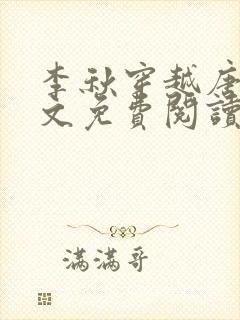 李秋穿越唐
文免費閱讀
滿滿哥